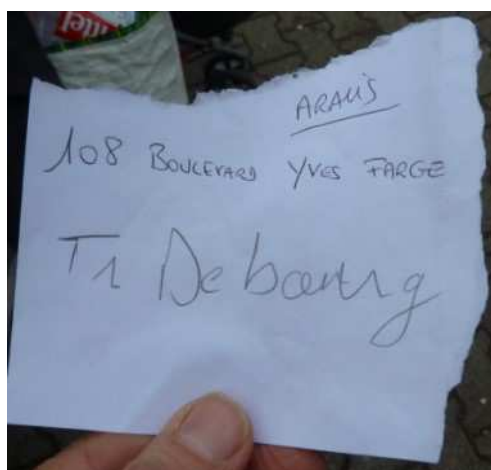 ARALIS
108 BOULEVARD YVES FARGE
T1 Debourg